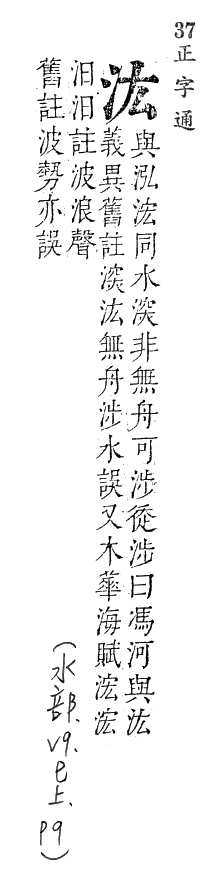 37正字通
汯
與泓浤同水㴱非無舟可涉徒涉曰馮河與汯
義異舊註㴱汯無舟涉水誤又木華海賦浤浤
汩汩註波浪聲
舊註波勢亦誤
(水部.v9.巳上.p9)